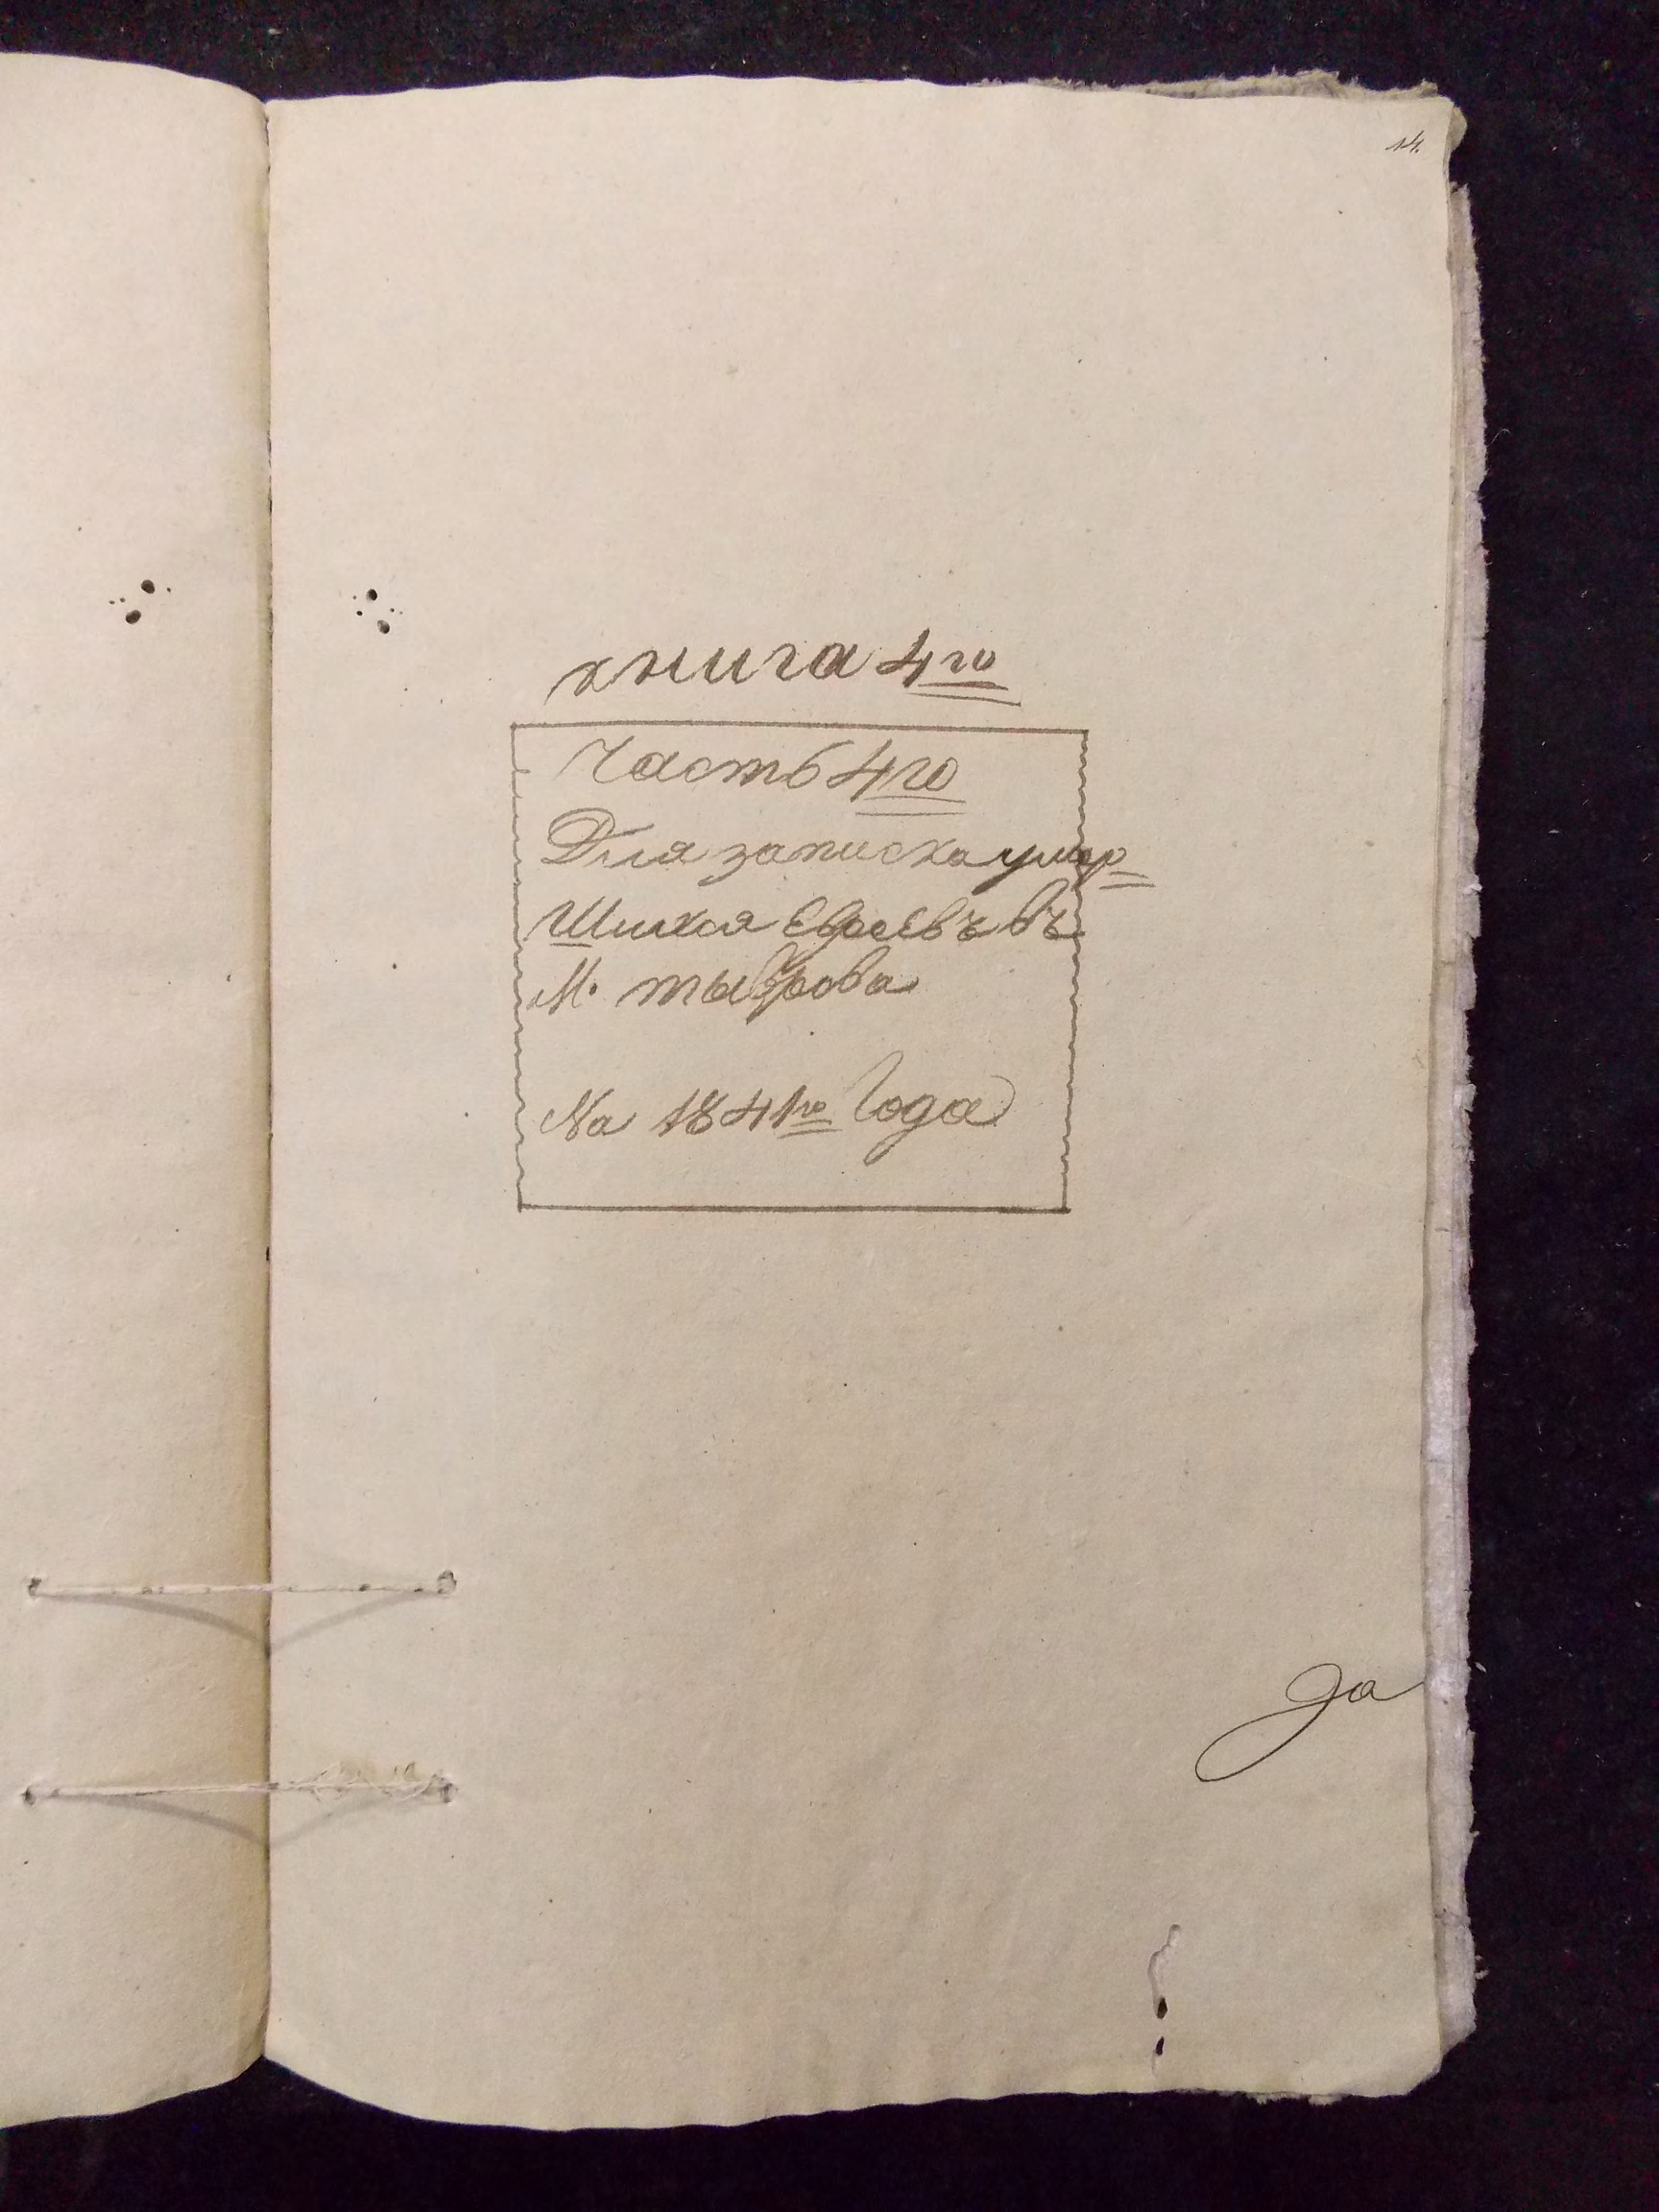 14.
книга 4го
Часть 4го
Для записка умер=
Шихся Евреевъ въ
М. тыврова
На 1841го Года
За